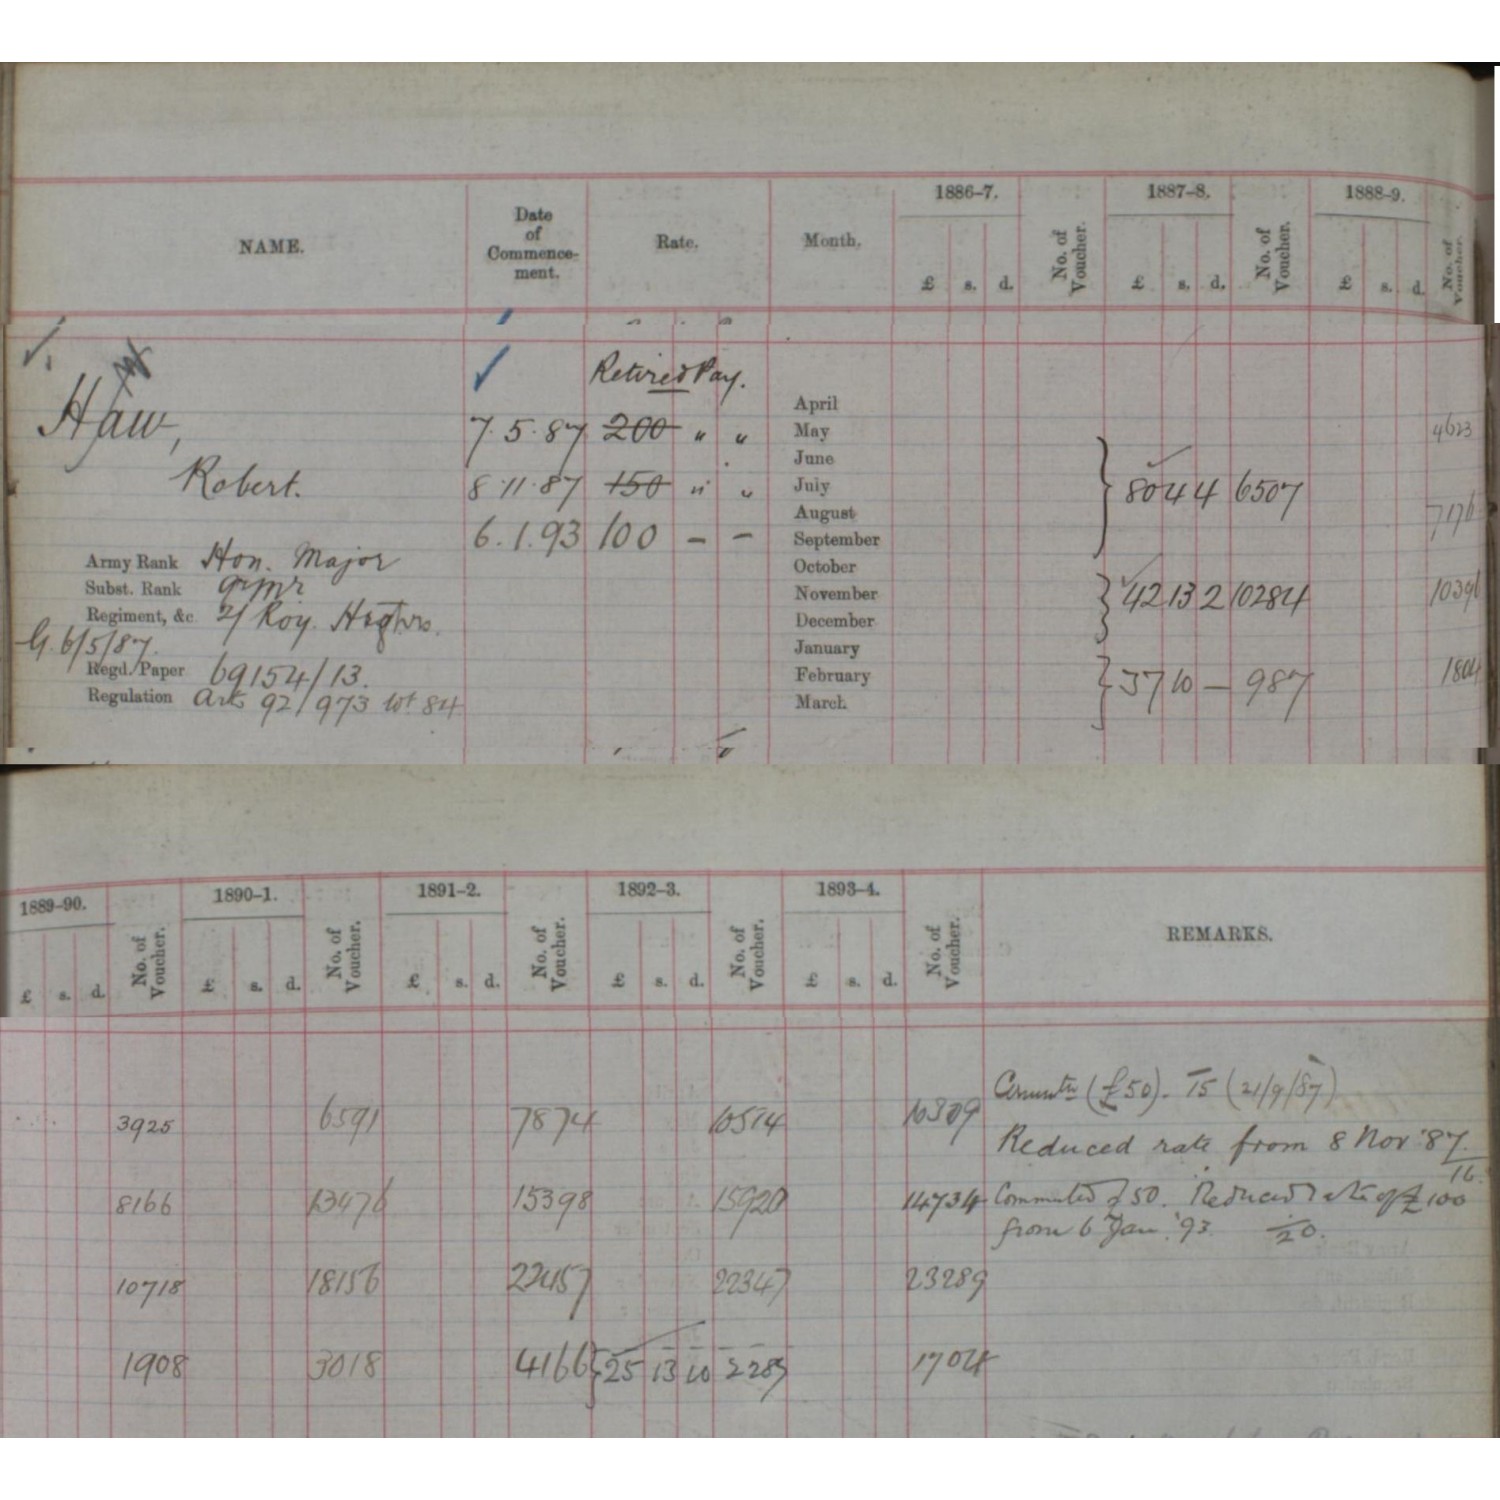 NAME.
Date of Commence-ment.
Rate.
Month.
1886-7.
£ s. d.
No. of Voucher.
1887-8.
£ s. d.
No. of Voucher.
1888-9.
£ s. d.
No. of Voucher.
Haw,
Robert.
Retired Pay.
7.5.87 200 " "
8.11.87 150 " "
6.1.93 100 - -
Army Rank Hon. Major
Subst. Rank Qrmr
Regiment, &c. 2/ Roy. Highrs.
G. 6/5/87.
Regd. Paper 69154/13.
Regulation Arts 92/973 Wt 84
April
May 4623
June
July 80 4 4 6507
August 7176
September
October
November 42 13 2 10284 10396
December
January
February 37 10 - 987 1804
March
1889-90.
£ s. d.
No. of Voucher.
1890-1.
£ s. d.
No. of Voucher.
1891-2.
£ s. d.
No. of Voucher.
1892-3.
£ s. d.
No. of Voucher.
1893-4.
£ s. d.
No. of Voucher.
REMARKS.
3925 6591 7874 10514 10309
8166 13476 15398 15920 14734
10718 18156 22457 22347 23289
1908 3018 4166 25 13 10 2289 1704
Commuted (£50). 15 (21/9/87)
Reduced rate from 8 Nov '87.
16.
Commuted £50. Reduced rate of £100
from 6 Jan. '93. 20.